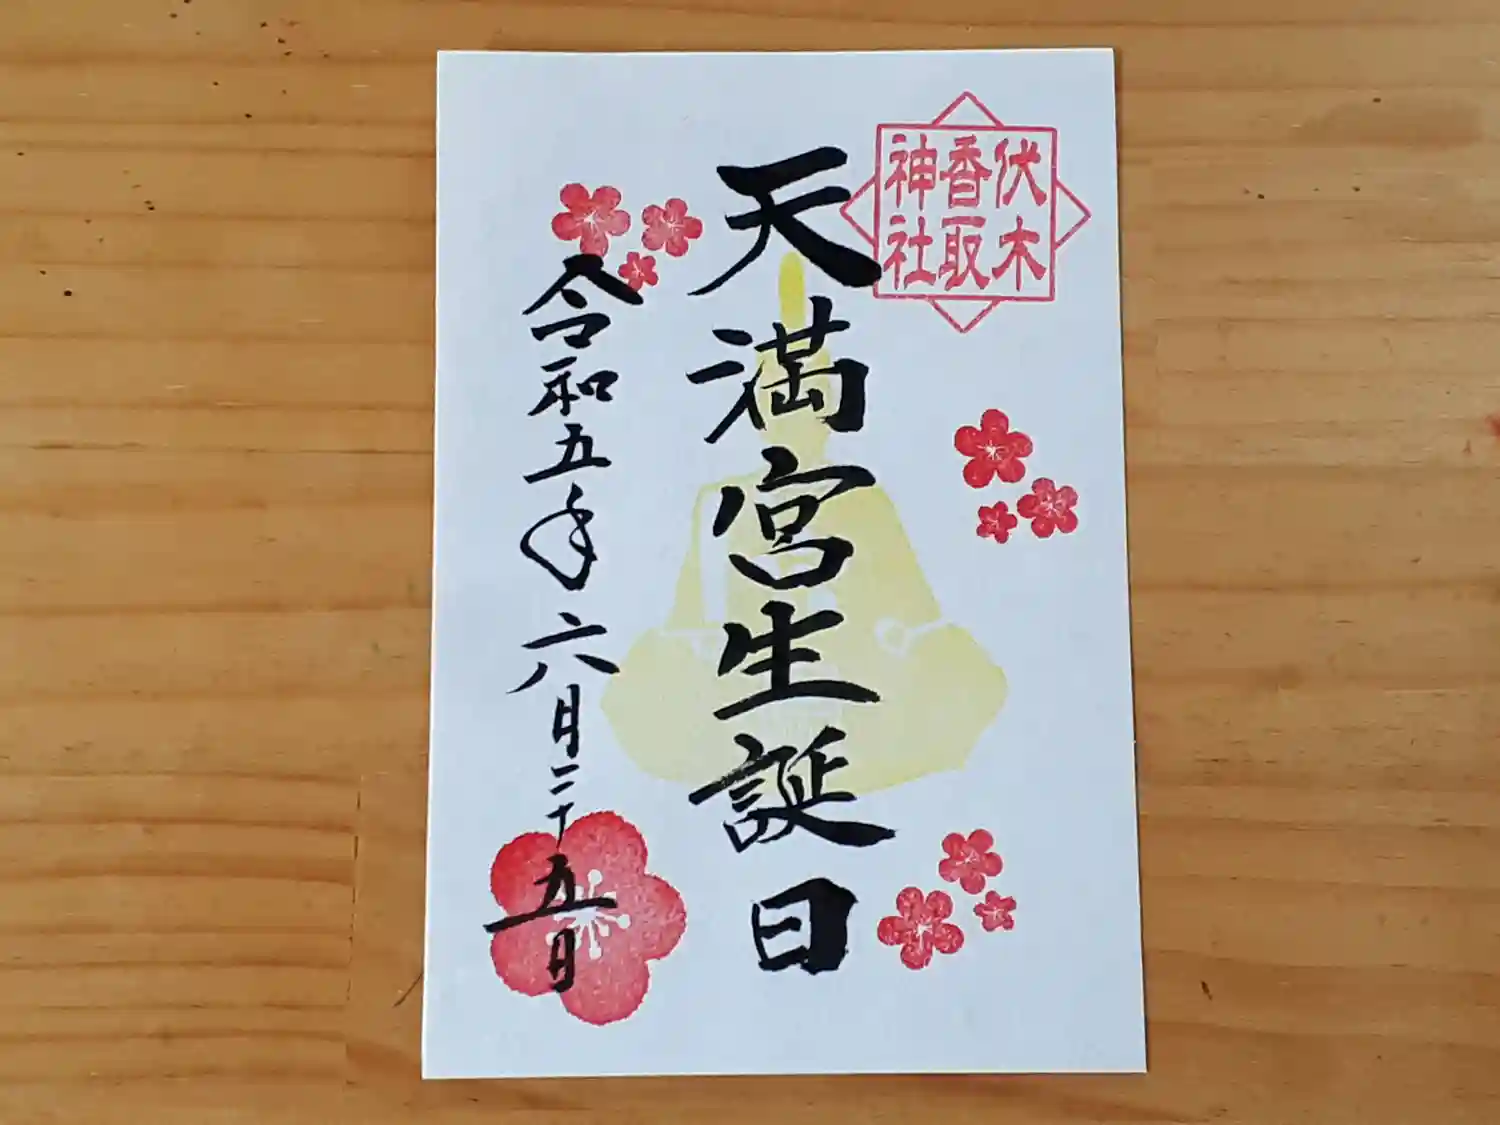 伏木
香取
神社
天満宮生誕日
令和五年六月二十五日